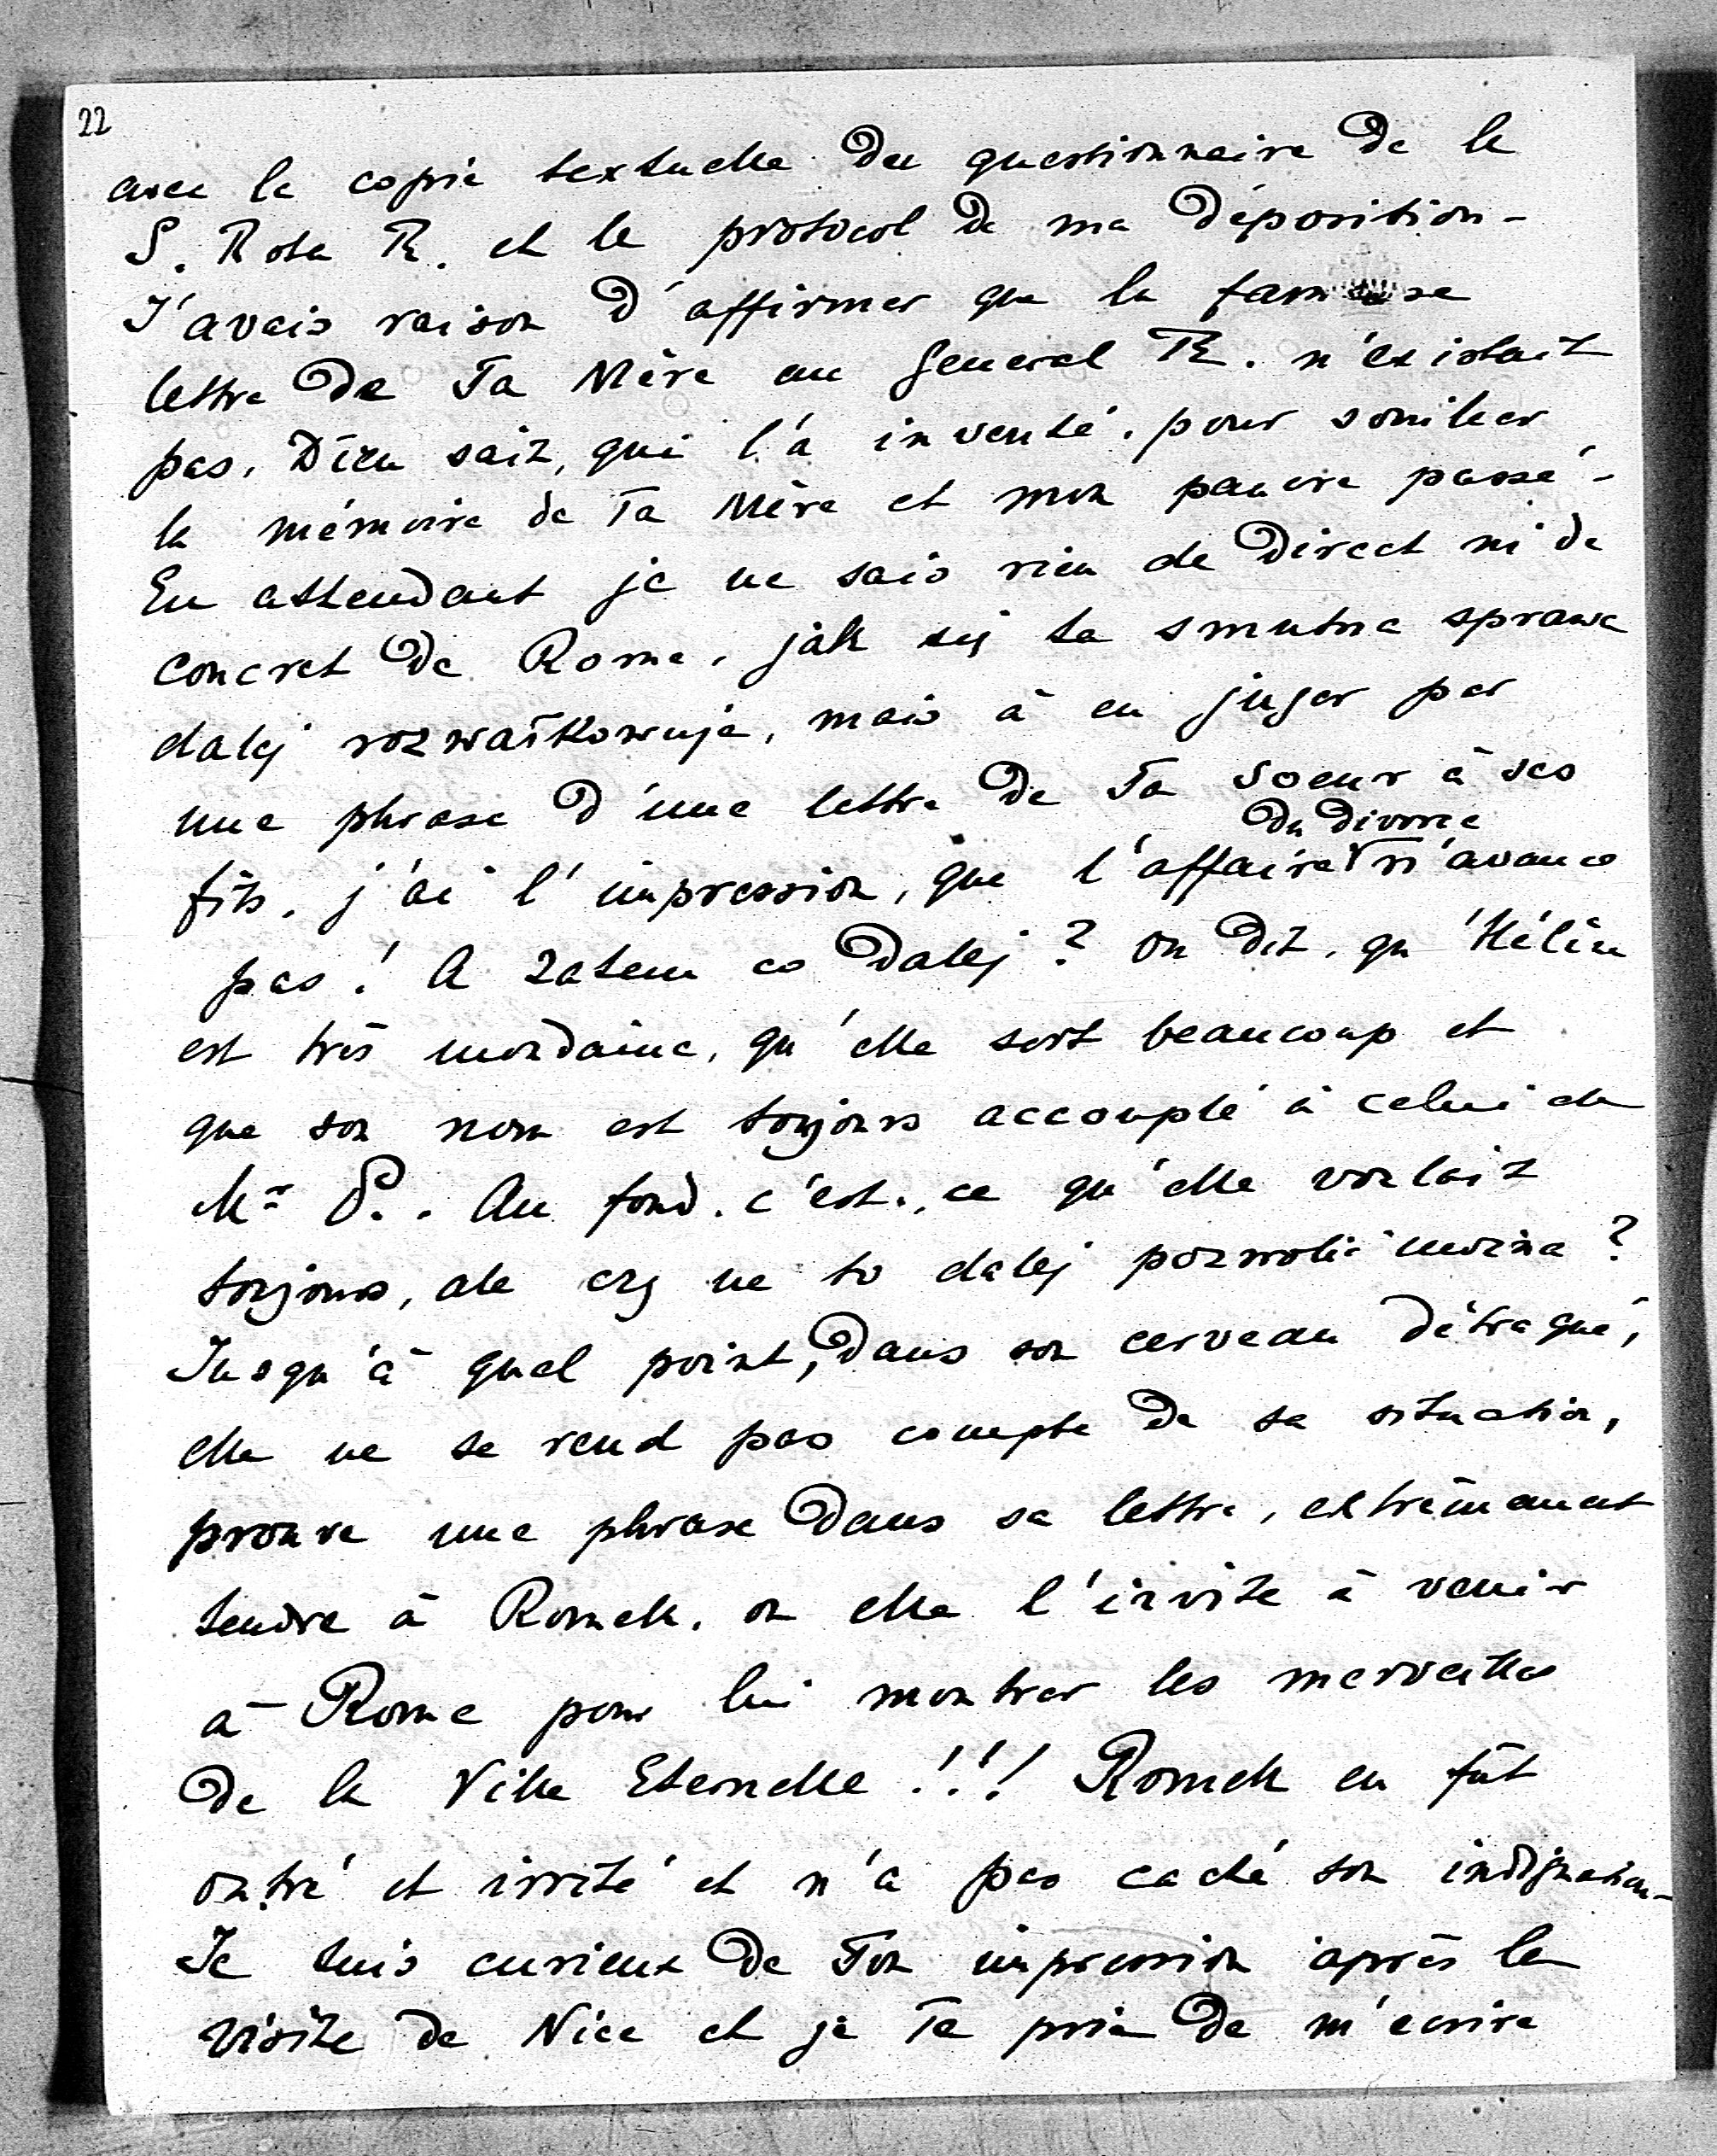 22
avec la copie textuelle du questionnaire de la
S. Rota R. et le protocol de ma déposition -
J'avais raison d'affirmer que la fameuse
lettre de Ta Mère au General R. n'existait
pas. Dieu sait, qui l'a inventé, pour souiller
la mémoire de Ta Mère et mon pauvre passé -
En attendant je ne sais rien de direct ni de
concret de Rome, jak się ta smutna sprawa
dalej rozwałkowuje, mais à en juger par
une phrase d'une lettre de Ta Soeur à ses
du divorce
fils, j'ai l'impression, que l'affaire n'avance
pas! A zatem co dalej? On dit, qu'Hélène
est très mondaine, qu'elle sort beaucoup et
que son nom est toujours accouplé à celui de
Mr P.. Au fond, c'est, ce qu'elle voulait
toujours, ale czy na to dalej pozwolić można?
Jusqu'à quel point, dans son cerveau détraqué,
elle ne se rend pas compte de sa situation,
prouve une phrase dans sa lettre, extrêmement
tendre à Romek, ou elle l'invite à venir
à Rome pour lui montrer les merveilles
de la Ville Eternelle!!! Romek en fût
outré et irrité et n'a pas caché son indignation -
Je suis curieux de Ton impression après la
visite de Nice et je Te prie de m'ecrire